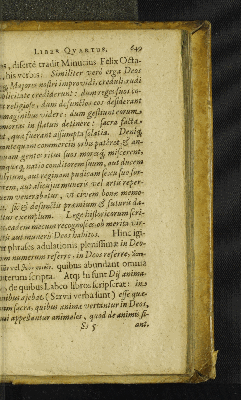 LIBER QUARTUS. 649
os, disertè tradit Minutius Felix Octa-
, his verbis: Similiter verò erga Deos
q́ Majores nostri improvidi, creduli, rudi
plicitate crediderunt: dum reges suos co-
t religiose, dum defunctos eos desiderant
maginibus videre: dum gestiunt eorum
morias in statuis detinere: sacra facta
t, quæ fuerant assumpta solatia. Deniq́
antequam commercijs orbis patéret & an-
quam gentes ritus suos moresq́ miscerent
quæq́ natio conditorem suum, aut ducem
aut reginam pudicam sexu suo for-
rem, aut alicujus muneris vel artis reper-
em venerabatur, ut civem bonæ memo-
sic & defunctis præmium & futuris da-
tur exemplum. Lege historicorum scri-
eadem mecum recognosces: ob merita vir-
is aut muneris Deos habitos. Hinc igi-
ur phrases adulationis plenissimæ in Deo-
um numerum referre: in Deos referre,
quibus abundant omnia
iterum scripta. Atqi hi sunt Dij anima-
, de quibus Labeo libros scripserat: in
nibus ajebat (Servii verba sunt) esse quæ-
am sacra, quibus animæ vertantur in Deos,
ui appellantur animales, quòd de animis fi-
Ss 5 ant.